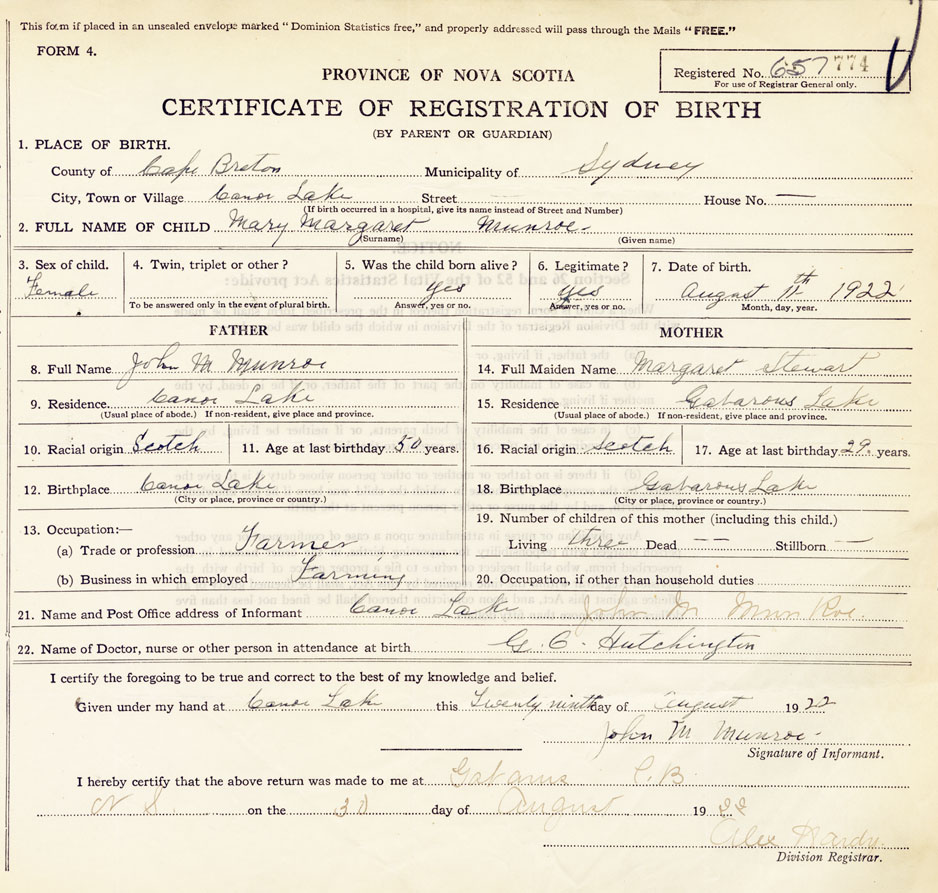 This form if placed in an unsealed envelope marked "Dominion Statistics free," and properly addressed will pass through the Mails "FREE."
FORM 4.
Registered No. 657 774
For use of Registrar General only.
PROVINCE OF NOVA SCOTIA
CERTIFICATE OF REGISTRATION OF BIRTH
(BY PARENT OR GUARDIAN)
1. PLACE OF BIRTH.
County of Cape Breton Municipality of Sydney
City, Town or Village Canoe Lake Street House No. —
(If birth occurred in a hospital, give its name instead of Street and Number)
2. FULL NAME OF CHILD Mary Margaret Munroe-
(Surname) (Given name)
3. Sex of child. Female
4. Twin, triplet or other?
To be answered only in the event of plural birth.
5. Was the child born alive? yes
Answer, yes or no.
6. Legitimate? yes
Answer, yes or no.
7. Date of birth.
August 11th 1922
Month, day, year.
FATHER
8. Full Name John M Munroe
9. Residence Canoe Lake
(Usual place of abode.) If non-resident, give place and province.
10. Racial origin Scotch 11. Age at last birthday 50 years.
12. Birthplace Canoe Lake
(City or place, province or country.)
13. Occupation:—
(a) Trade or profession Farmer
(b) Business in which employed Farming
MOTHER
14. Full Maiden Name Margaret Stewart
15. Residence Gabarous Lake
(Usual place of abode.) If non-resident, give place and province.
16. Racial origin Scotch 17. Age at last birthday 29. years.
18. Birthplace Gabarous Lake
(City or place, province or country.)
19. Number of children of this mother (including this child.)
Living three Dead — — Stillborn —
20. Occupation, if other than household duties
21. Name and Post Office address of Informant Canoe Lake John M MunRoe.
22. Name of Doctor, nurse or other person in attendance at birth G. C. Hutchington
I certify the foregoing to be true and correct to the best of my knowledge and belief.
Given under my hand at Canoe Lake this Twenty ninth day of August 1922
John M Munroe-
Signature of Informant.
I hereby certify that the above return was made to me at Gabarus C.B
N S. on the 30 day of August 1922
Alex Hardy.
Division Registrar.